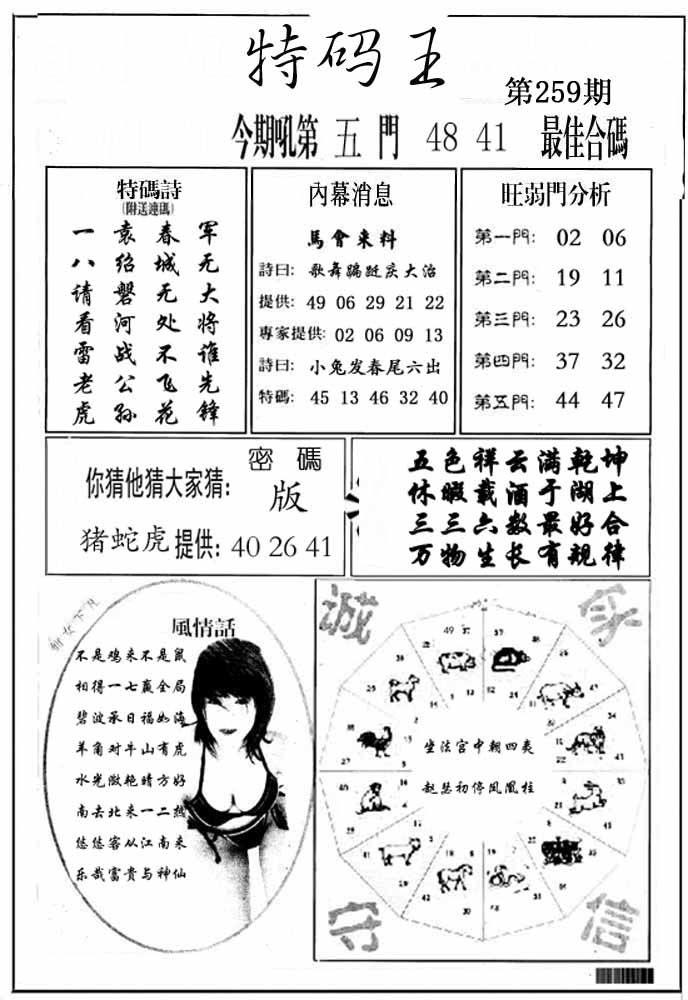 特码王
第259期
今期吼第 五 門 48 41 最佳合碼
特碼詩
(附送連碼)
一 袁 春 军
八 绍 城 无
请 磐 无 大
看 河 处 将
雷 战 不 谁
老 公 飞 先
虎 孙 花 锋
內幕消息
馬會来料
詩曰: 歌舞蹁跹庆大治
提供: 49 06 29 21 22
專家提供: 02 06 09 13
詩曰: 小兔发春尾六出
特碼: 45 13 46 32 40
旺弱門分析
第一門: 02 06
第二門: 19 11
第三門: 23 26
第四門: 37 32
第五門: 44 47
密 碼
你猜他猜大家猜: 版
猪蛇虎 提供: 40 26 41
五色祥云满乾坤
休暇载酒于湖上
三三六数最好合
万物生长有规律
風情話
不是鸡来不是鼠
相得一七赢全局
碧波承日福如海
羊角对牛山有虎
水光潋艳晴方好
南去北来一二热
悠悠客从江南来
乐哉富贵与神仙
诚
家
坐法宫中朝四夷
赵瑟初停凤凰柱
守
信